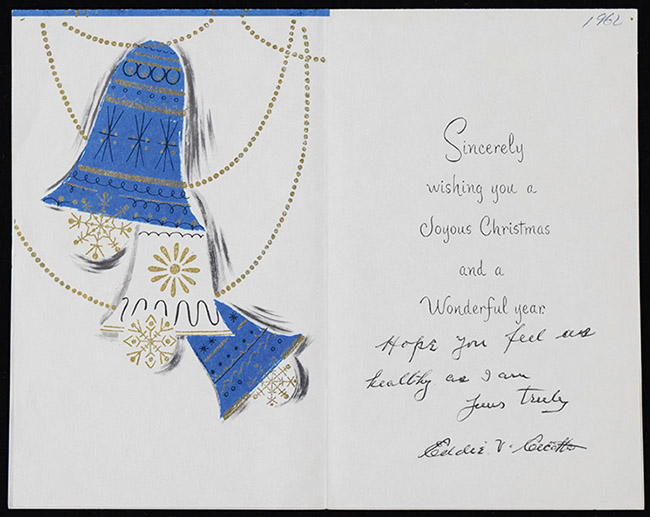 1962
Sincerely
wishing you a
Joyous Christmas
and a
Wonderful year.
Hope you feel as
healthy as I am
Yours truly
Eddie V. Cicotte